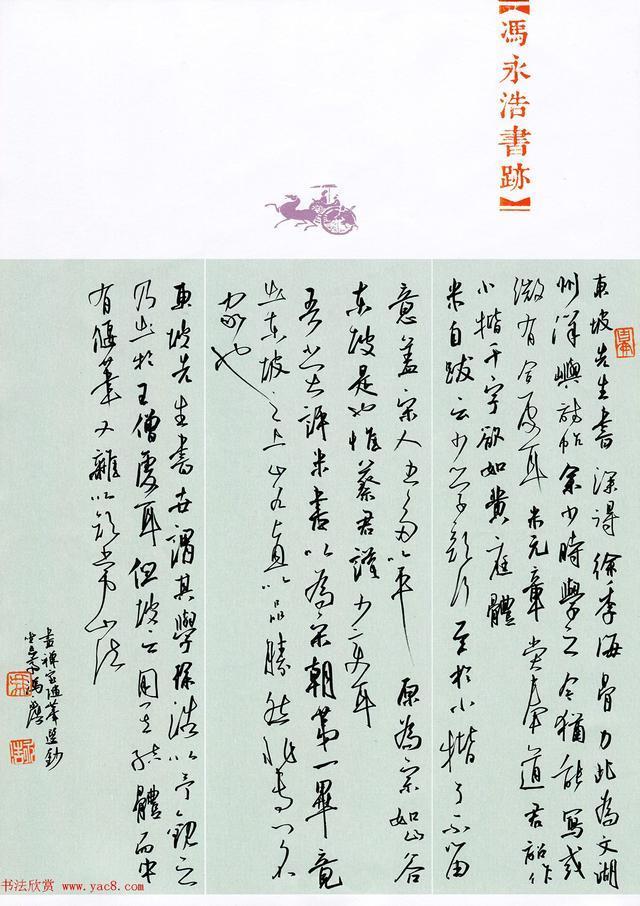 【馮永浩書跡】
東坡先生書深得徐季海骨力此為文湖
州洋嶼詩帖余少時學之今猶能寫或
微有合處耳米元章嘗奉道君詔作
小楷千字欲如黃庭體
米自跋云少學顏行至於小楷了不留
意蓋宋人書多以平原為宗如山谷
東坡是也惟蔡君謨少變耳
吾嘗評米書以為宋朝第一畢竟
出東坡之上山谷直以品勝然非專門名
家也
東坡先生書世謂其學徐浩以予觀之
乃出於王僧虔耳但坡公用其結體而中
有偃筆又雜以顏常山法
畫禪室隨筆選鈔
馮
书法欣赏 www.yac8.com